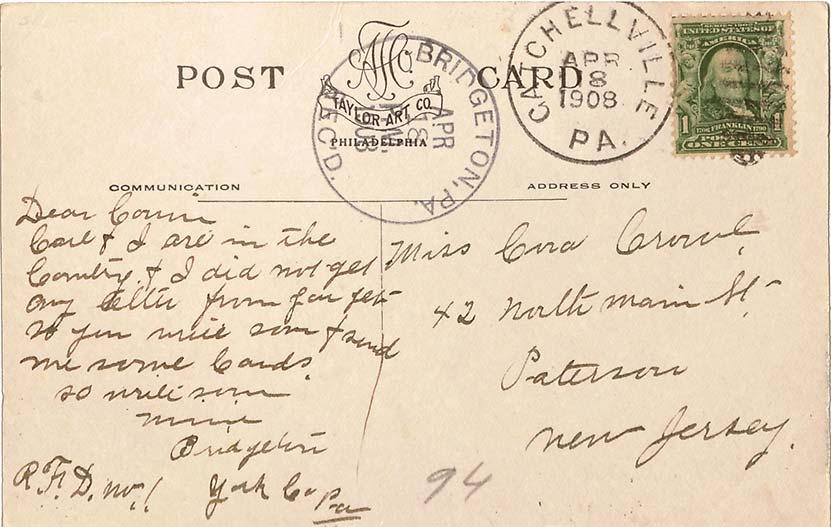 POST CARD
TAYLOR ART CO.
PHILADELPHIA
BRIDGETON, PA.
APR
18
1908
REC'D.
GATCHELLVILLE
APR
18
1908
PA.
SERIES 1902
UNITED STATES OF
AMERICA
1706 FRANKLIN 1790
1
ONE CENT
COMMUNICATION
ADDRESS ONLY
Dear Cousin
Carl & I are in the
Country & I did not get
any letter from you yet
so you write soon & send
me some Cards
so write soon
Minnie
Bridgeton
R.F.D. No. 1 York Co Pa
Miss Cora
42 North Main St
Paterson
New Jersey.
94